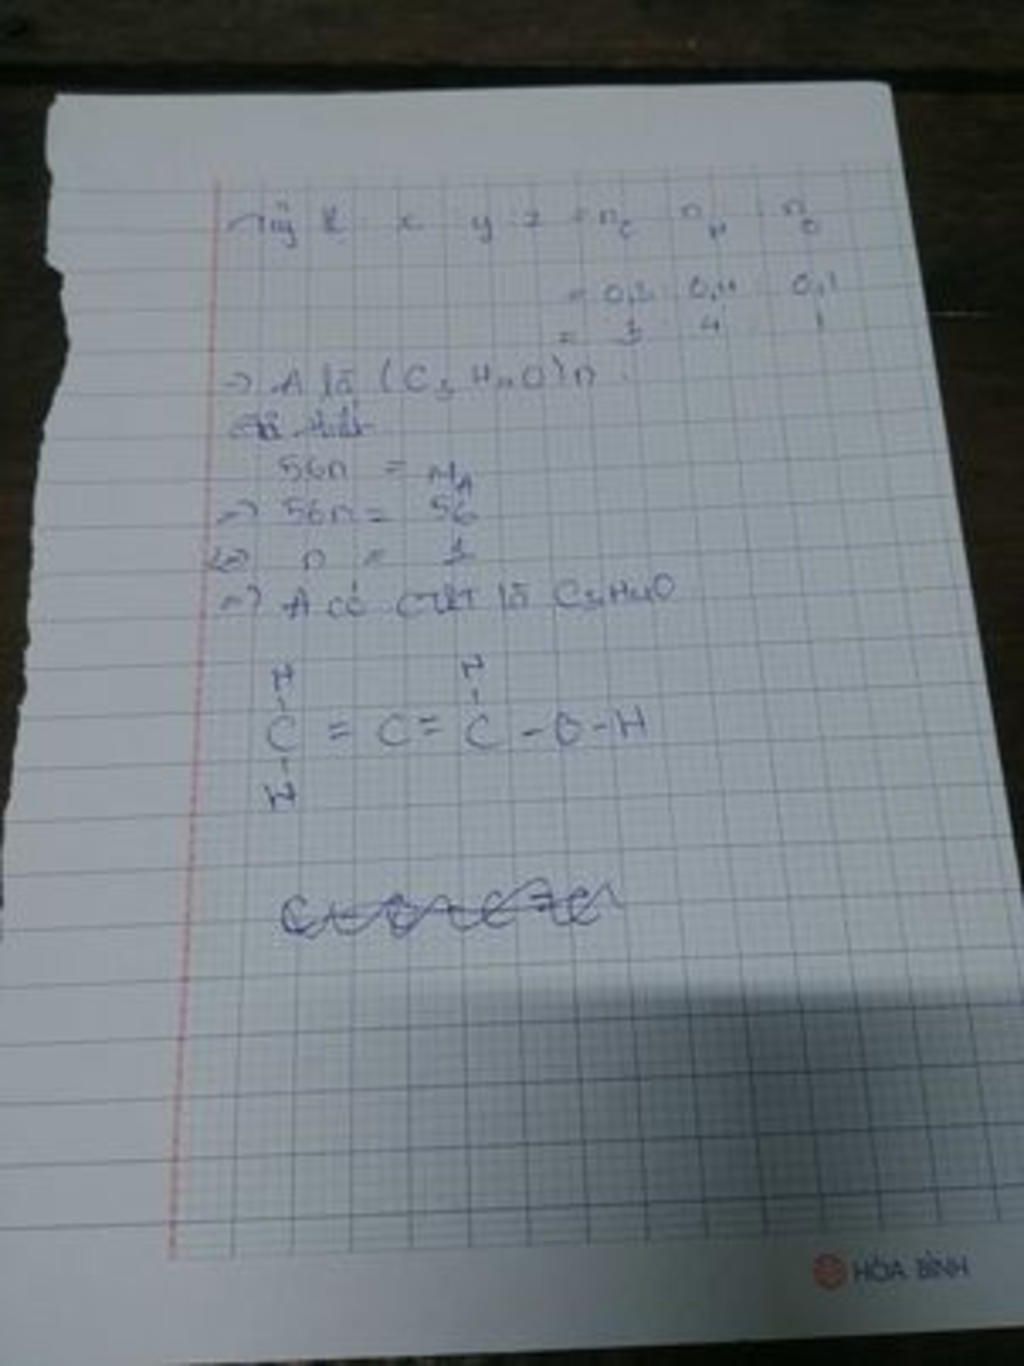 Tỷ lệ x y z = nC nH nO
= 0,3 0,4 0,1
= 3 4 1
=> A là (C3H4O)n
56n = MA
=> 56n = 56
<=> n = 1
=> A có CTPT là C3H4O
H H
C = C = C - O - H
H
HÒA BÌNH